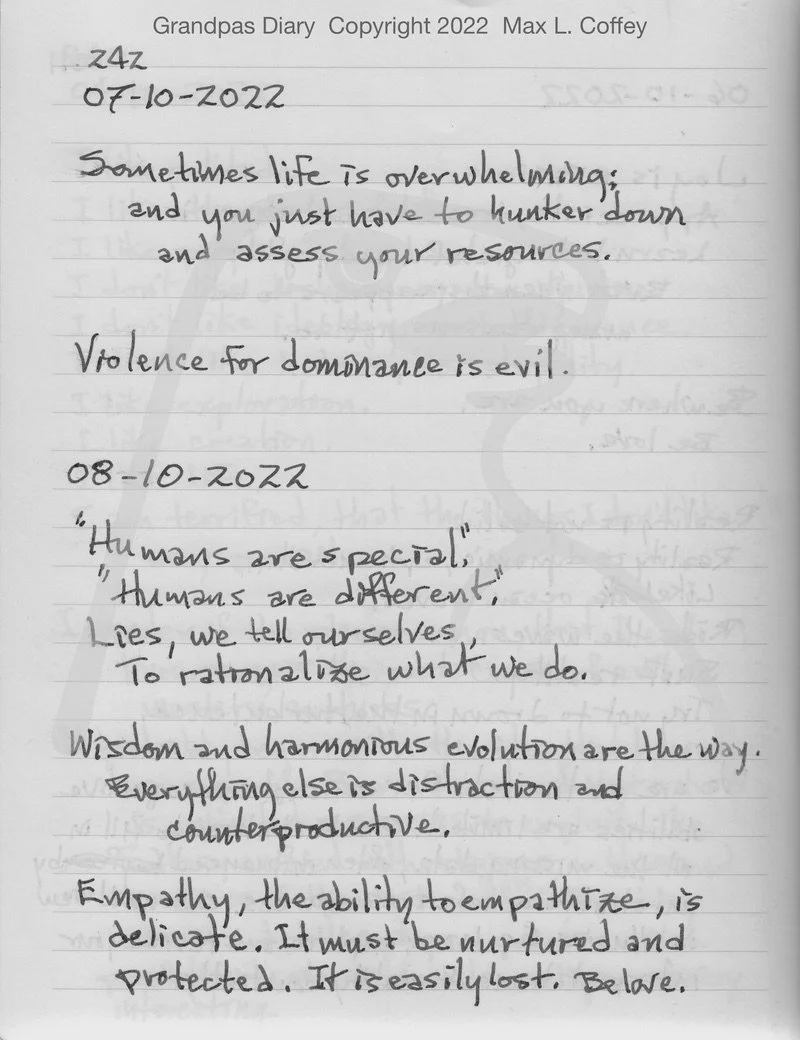 Grandpas Diary Copyright 2022 Max L. Coffey
242
07-10-2022
Sometimes life is overwhelming;
and you just have to hunker down
and assess your resources.
Violence for dominance is evil.
08-10-2022
"Humans are special,"
"Humans are different,"
Lies, we tell ourselves,
To rationalize what we do.
Wisdom and harmonious evolution are the way.
Everything else is distraction and
counterproductive.
Empathy, the ability to empathize, is
delicate. It must be nurtured and
protected. It is easily lost. Be love.